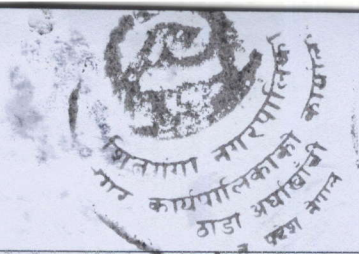 शितगंगा नगरपालिका
नगर कार्यपालिकाको कार्यालय
ठाडा अर्घाखाँची
प्रदेश नेपाल